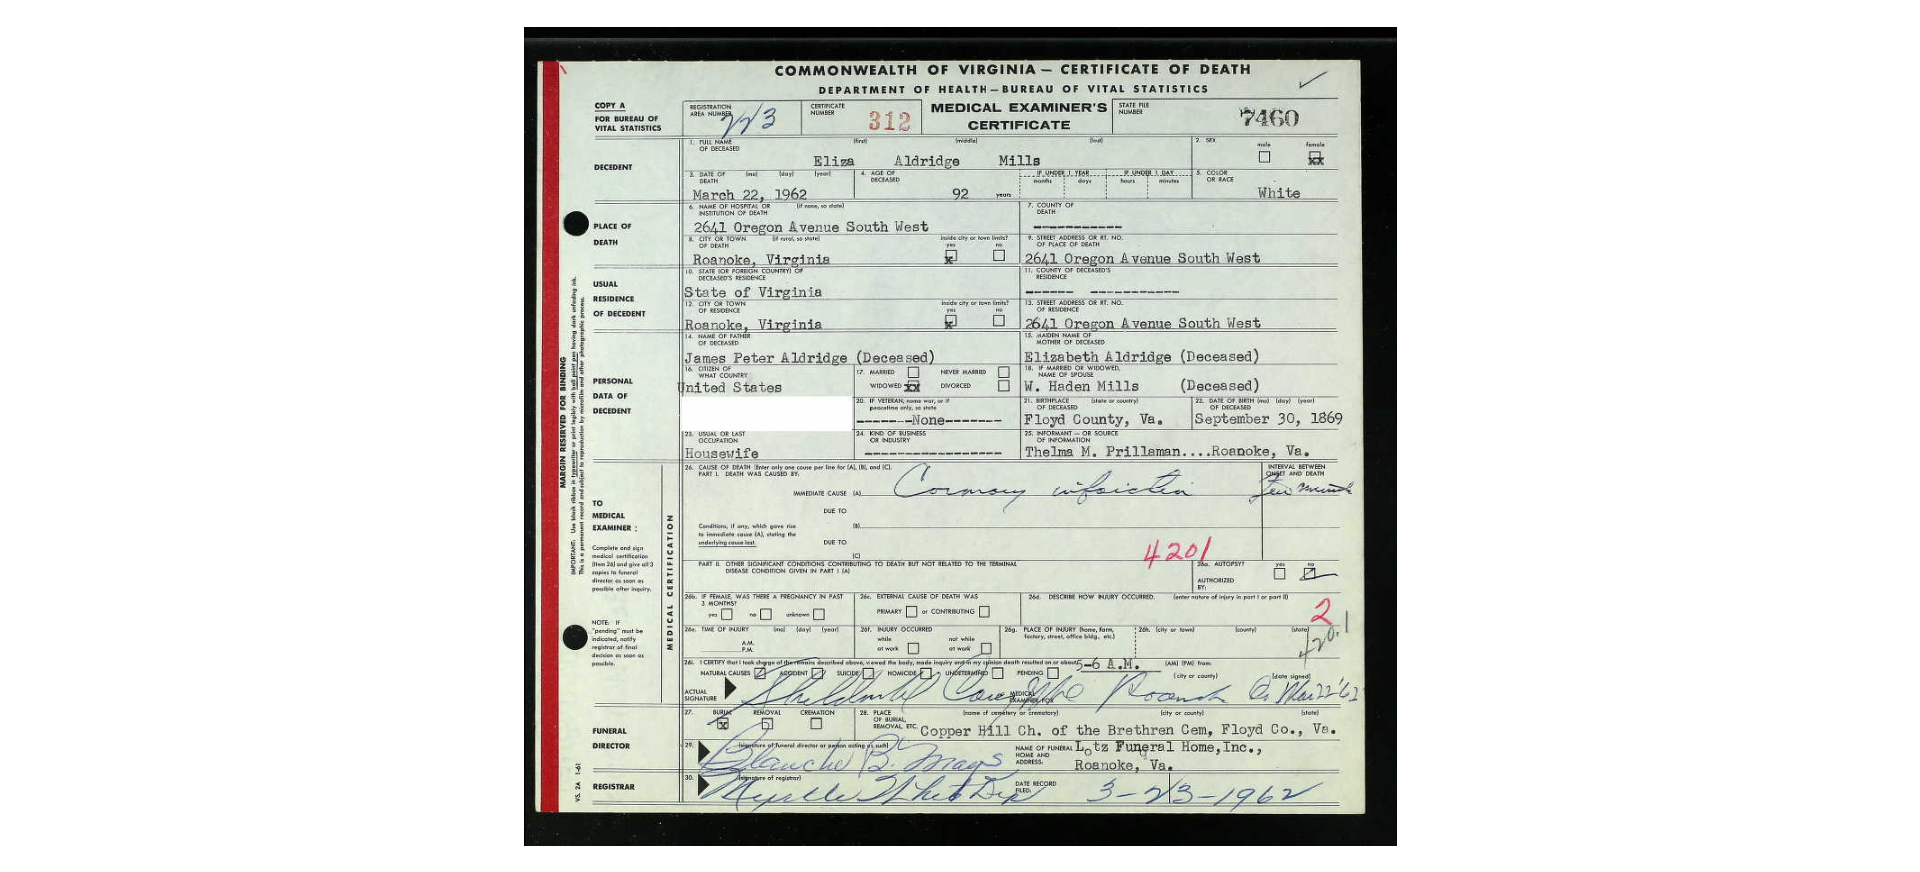 COMMONWEALTH OF VIRGINIA — CERTIFICATE OF DEATH
DEPARTMENT OF HEALTH — BUREAU OF VITAL STATISTICS
COPY A
FOR BUREAU OF
VITAL STATISTICS
REGISTRATION
AREA NUMBER
CERTIFICATE
NUMBER
312
MEDICAL EXAMINER'S
CERTIFICATE
STATE FILE
NUMBER
7460
DECEDENT
1. FULL NAME
OF DECEASED
(first) (middle) (last)
Eliza Aldridge Mills
2. SEX
male female
xx
3. DATE OF DEATH (mo) (day) (year)
March 22, 1962
4. AGE OF
DECEASED
92 years
IF UNDER 1 YEAR IF UNDER 1 DAY
months days hours minutes
5. COLOR
OR RACE
White
PLACE OF
DEATH
6. NAME OF HOSPITAL OR (if none, so state)
INSTITUTION OF DEATH
2641 Oregon Avenue South West
7. COUNTY OF
DEATH
-----------
8. CITY OR TOWN (if rural, so state)
OF DEATH
Roanoke, Virginia
inside city or town limits?
yes no
x
9. STREET ADDRESS OR RT. NO.
OF PLACE OF DEATH
2641 Oregon Avenue South West
USUAL
RESIDENCE
OF DECEDENT
10. STATE (OR FOREIGN COUNTRY) OF
DECEASED'S RESIDENCE
State of Virginia
11. COUNTY OF DECEASED'S
RESIDENCE
------ -----------
12. CITY OR TOWN
OF RESIDENCE
Roanoke, Virginia
inside city or town limits?
yes no
x
13. STREET ADDRESS OR RT. NO.
OF RESIDENCE
2641 Oregon Avenue South West
PERSONAL
DATA OF
DECEDENT
14. NAME OF FATHER
OF DECEASED
James Peter Aldridge (Deceased)
15. MAIDEN NAME OF
MOTHER OF DECEASED
Elizabeth Aldridge (Deceased)
16. CITIZEN OF
WHAT COUNTRY
United States
17. MARRIED NEVER MARRIED
WIDOWED xx DIVORCED
18. IF MARRIED OR WIDOWED,
NAME OF SPOUSE
W. Haden Mills (Deceased)
20. IF VETERAN, name war, or if
peacetime only, so state
-------None-------
21. BIRTHPLACE (state or country)
OF DECEASED
Floyd County, Va.
22. DATE OF BIRTH (mo) (day) (year)
OF DECEASED
September 30, 1869
23. USUAL OR LAST
OCCUPATION
Housewife
24. KIND OF BUSINESS
OR INDUSTRY
-----------------
25. INFORMANT — OR SOURCE
OF INFORMATION
Thelma M. Prillaman....Roanoke, Va.
MARGIN RESERVED FOR BINDING
TO
MEDICAL
EXAMINER:
Complete and sign
medical certification
(Item 26) and give all 3
copies to funeral
director as soon as
possible after inquiry.
NOTE: IF
"pending" must be
indicated, notify
registrar of final
decision as soon as
possible.
MEDICAL CERTIFICATION
26. CAUSE OF DEATH (Enter only one cause per line for (A), (B), and (C).
PART I. DEATH WAS CAUSED BY:
INTERVAL BETWEEN
ONSET AND DEATH
IMMEDIATE CAUSE (A)
DUE TO
Conditions, if any, which gave rise
to immediate cause (A), stating the
underlying cause last.
(B)
DUE TO
(C)
4201
PART II. OTHER SIGNIFICANT CONDITIONS CONTRIBUTING TO DEATH BUT NOT RELATED TO THE TERMINAL
DISEASE CONDITION GIVEN IN PART I (A)
26a. AUTOPSY? yes no
AUTHORIZED
BY:
26b. IF FEMALE, WAS THERE A PREGNANCY IN PAST
3 MONTHS?
yes no unknown
26c. EXTERNAL CAUSE OF DEATH WAS
PRIMARY or CONTRIBUTING
26d. DESCRIBE HOW INJURY OCCURRED. (enter nature of injury in part I or part II)
2
26e. TIME OF INJURY (mo) (day) (year)
A.M.
P.M.
26f. INJURY OCCURRED
while at work not while at work
26g. PLACE OF INJURY (home, farm,
factory, street, office bldg., etc.)
26h. (city or town) (county) (state)
420.1
26i. I CERTIFY that I took charge of the remains described above, viewed the body, made inquiry and in my opinion death resulted on or about 5-6 A.M. (AM) (PM) from:
NATURAL CAUSES ACCIDENT SUICIDE HOMICIDE UNDETERMINED PENDING
(city or county) (date signed)
ACTUAL
SIGNATURE
MEDICAL
EXAMINER FOR
FUNERAL
DIRECTOR
27. BURIAL REMOVAL CREMATION
x
28. PLACE
OF BURIAL,
REMOVAL, ETC.
(name of cemetery or crematory) (city or county) (state)
Copper Hill Ch. of the Brethren Cem, Floyd Co., Va.
29. (signature of funeral director or person acting as such)
Blanche B. Mays
NAME OF FUNERAL
HOME AND
ADDRESS:
Lotz Funeral Home,Inc.,
Roanoke, Va.
REGISTRAR
30. (signature of registrar)
DATE RECORD
FILED:
3-23-1962
VS. 2A 1-61